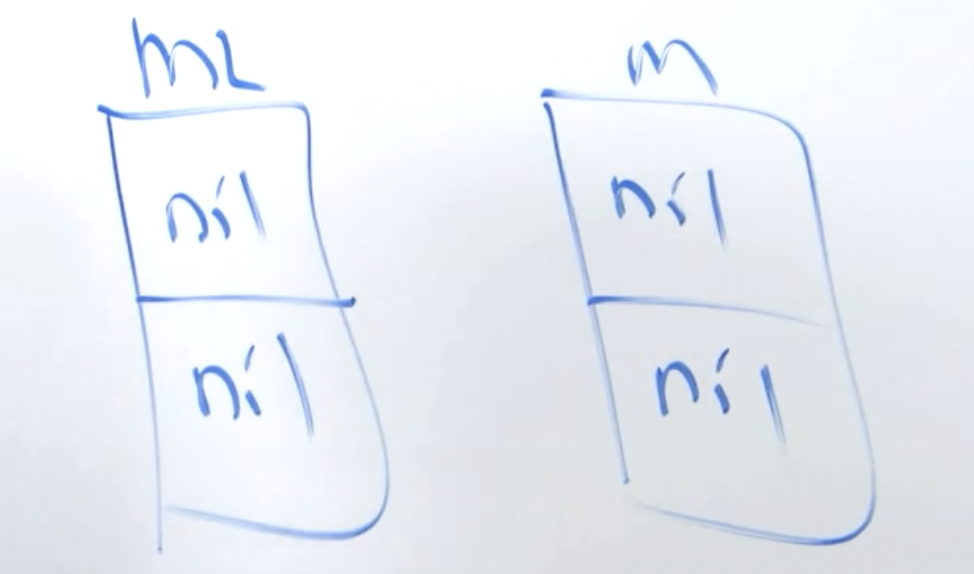 ml m
nil nil
nil nil